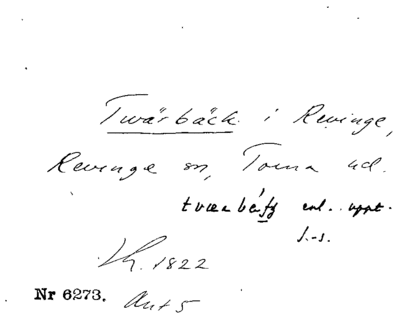 Twärbäck i Revinge,
Revinge sn, Torna hd.
enl. uppt.
s.-s.
1822
Nr 6273. Ant 5